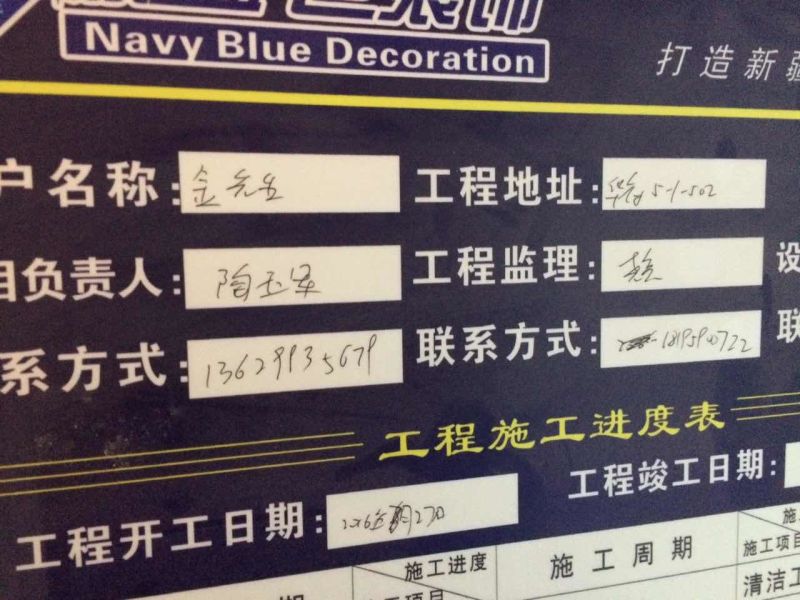 Navy Blue Decoration
打造新疆
户名称: 金先生 工程地址: 5-1-502
负责人: 陶玉军 工程监理: 设
系方式: 13629935679 联系方式: 联
工程施工进度表
工程开工日期: 27日 工程竣工日期:
施工进度 施工周期 施
施工项目
项目 清洁工